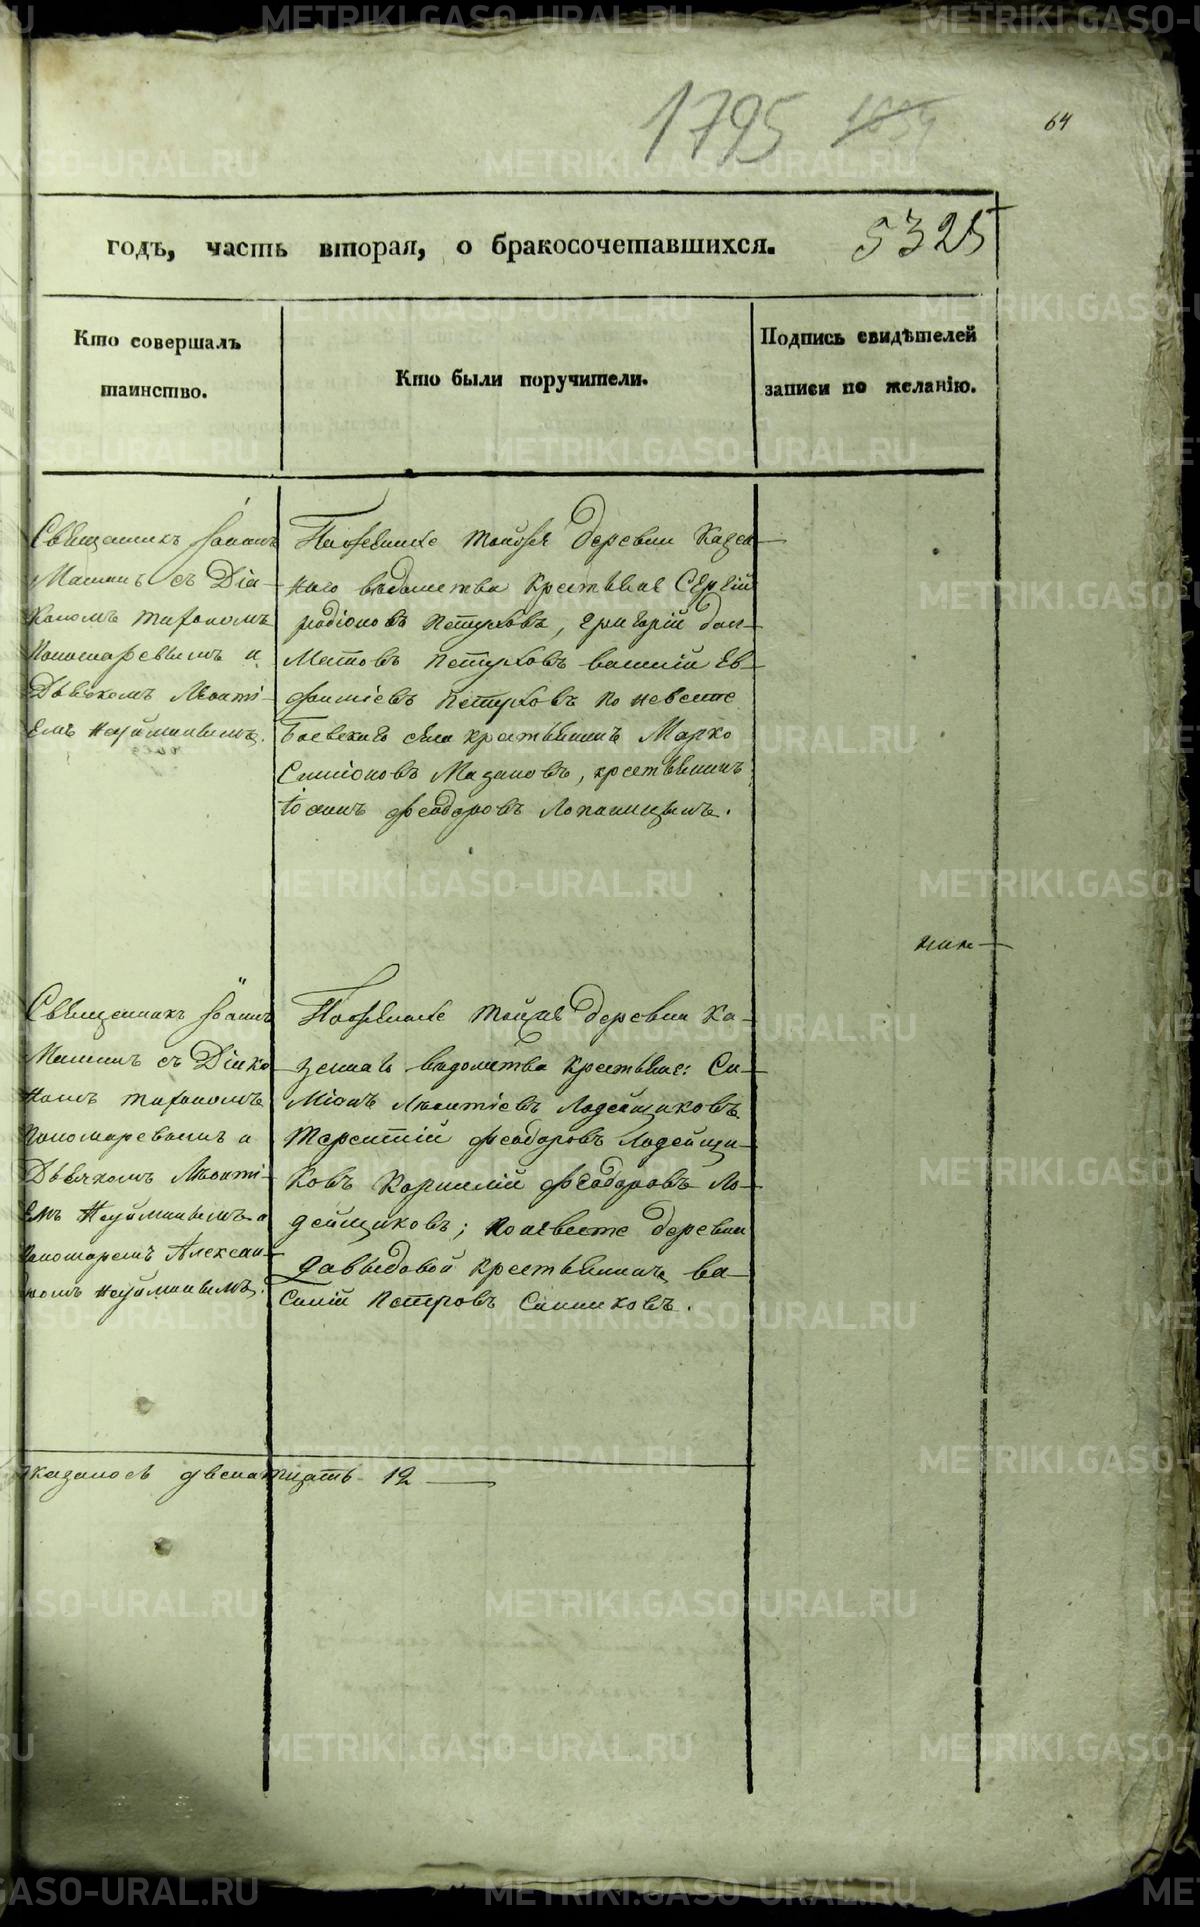 1795 1634 64
годъ, часть вторая, о бракосочетавшихся. 5325
Кто совершалъ
таинство.
Кто были поручители.
Подпись свидѣтелей
записи по желанію.
Священникъ Іоаннъ
съ Діа-
кономъ
Пономаревымъ и
Дьячкомъ Леонті-
емъ
По женихе тойже деревни казен-
наго ведомства крестьяне Сергій
Родіоновъ Петуховъ, Григорій Дол-
матовъ Петуховъ василій Ев-
фиміевъ Петуховъ по невесте
Боевскаго села крестьянинъ Марко
Симіоновъ Мазановъ, крестьянинъ
Іоаннъ Феодоровъ
Священникъ Іоаннъ
съ Діако-
номъ
Пономаревымъ и
Дьячкомъ Леонті-
емъ
пономаремъ Алексан-
По женихе тойже деревни ка-
зеннаго ведомства крестьяне: Си-
міонъ Леонтіевъ Лодейщиковъ
Терентій Феодоровъ Лодейщи-
ковъ Корнилій Феодоровъ Ло-
дейщиковъ; по невесте деревни
Давыдовой крестьянинъ Ва-
силій Петровъ Синниковъ.
оказалось двенатцать 12
METRIKI.GASO-URAL.RU